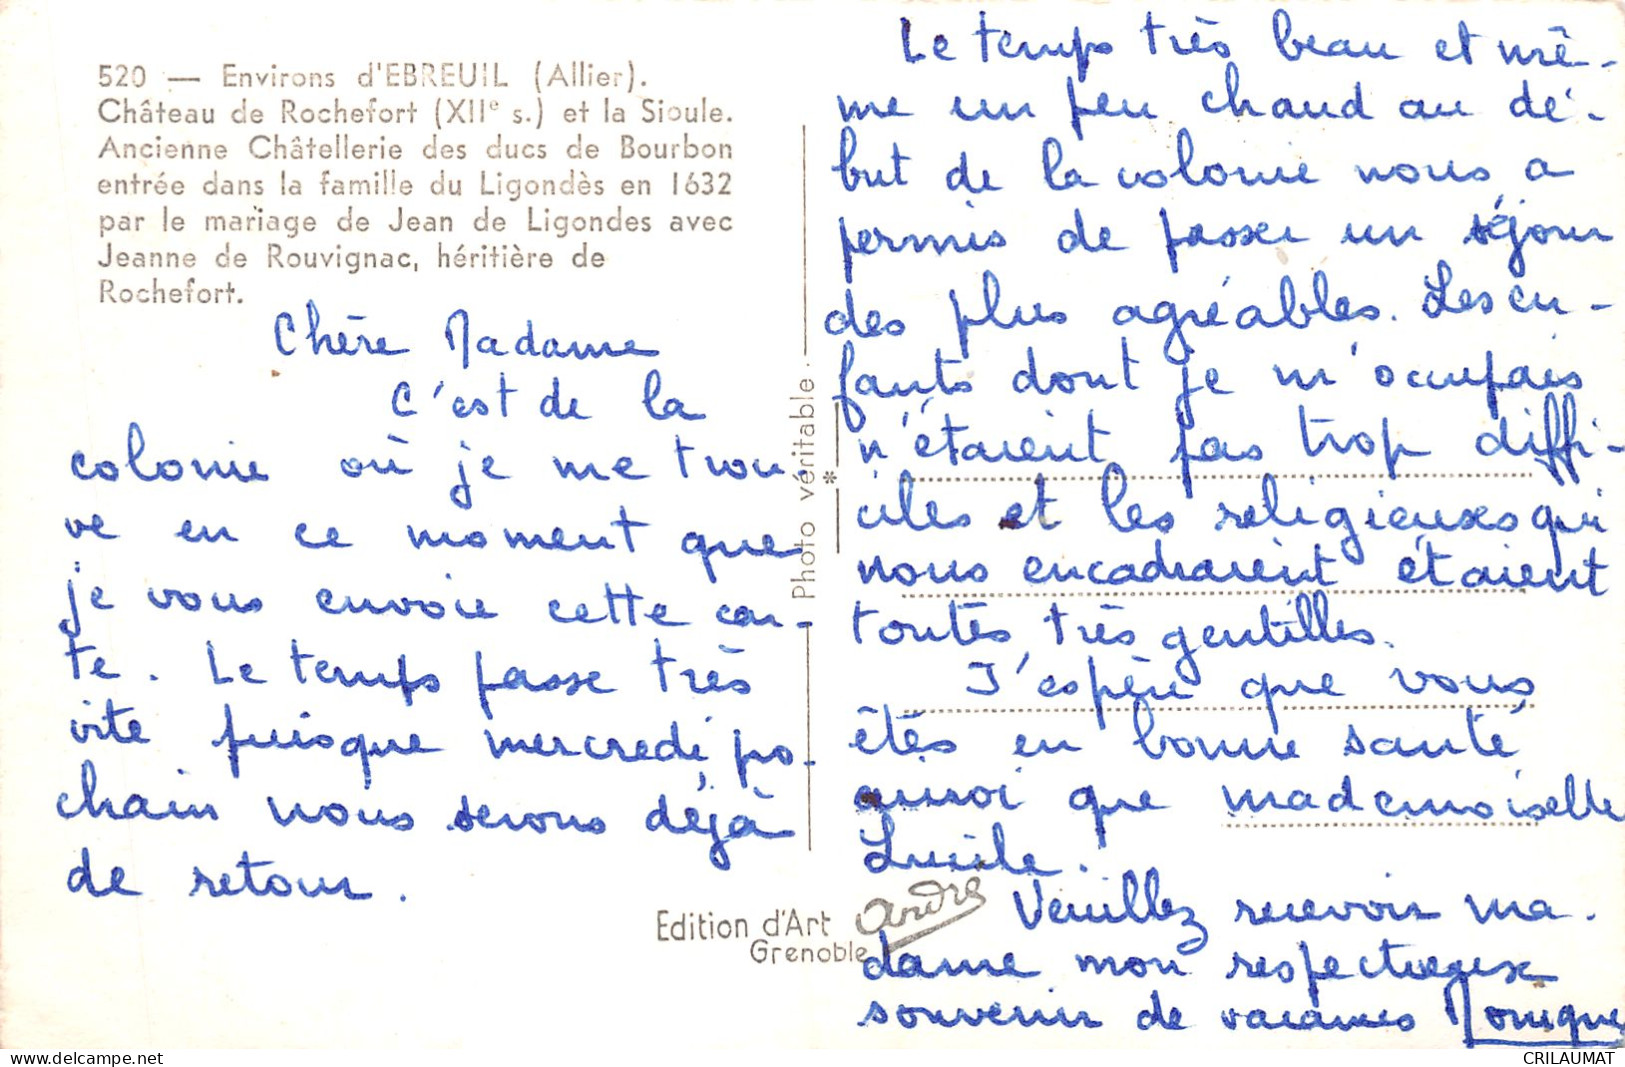 520 — Environs d'EBREUIL (Allier).
Château de Rochefort (XIIe s.) et la Sioule.
Ancienne Châtellerie des ducs de Bourbon
entrée dans la famille du Ligondès en 1632
par le mariage de Jean de Ligondes avec
Jeanne de Rouvignac, héritière de
Rochefort.
Chère Madame
C'est de la
colonie où je me trou-
ve en ce moment que
je vous envoie cette car-
te. Le temps passe très
vite puisque mercredi po-
chain nous serons déjà
de retour.
Edition d'Art André
Grenoble
Photo véritable
*
Le temps très beau et mê-
me un peu chaud au dé-
but de la colonie nous a
permis de passer un séjour
des plus agréables. Les en-
fants dont je m'occupais
n'étaient pas trop diffi-
ciles et les religieuses qui
nous encadraient étaient
toutes très gentilles.
J'espère que vous
êtes en bonne santé
ainsi que mademoiselle
Lucile.
Veuillez recevoir ma-
dame mon respectueux
souvenir de vacances Monique
delcampe.net
CRILAUMAT